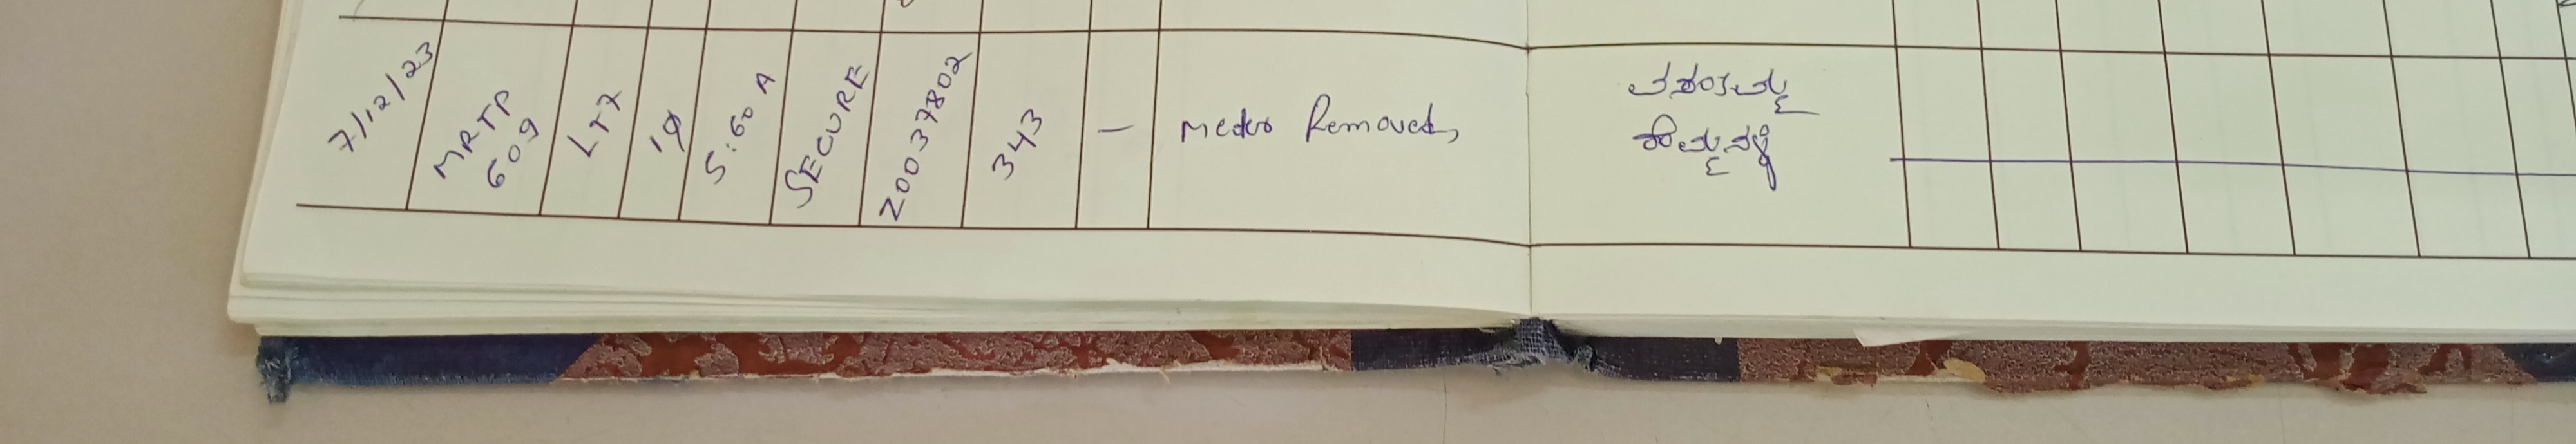 7/12/23
MRTP
609
LT7
1φ
5:60 A
SECURE
20037802
343
—
Meter Removed,